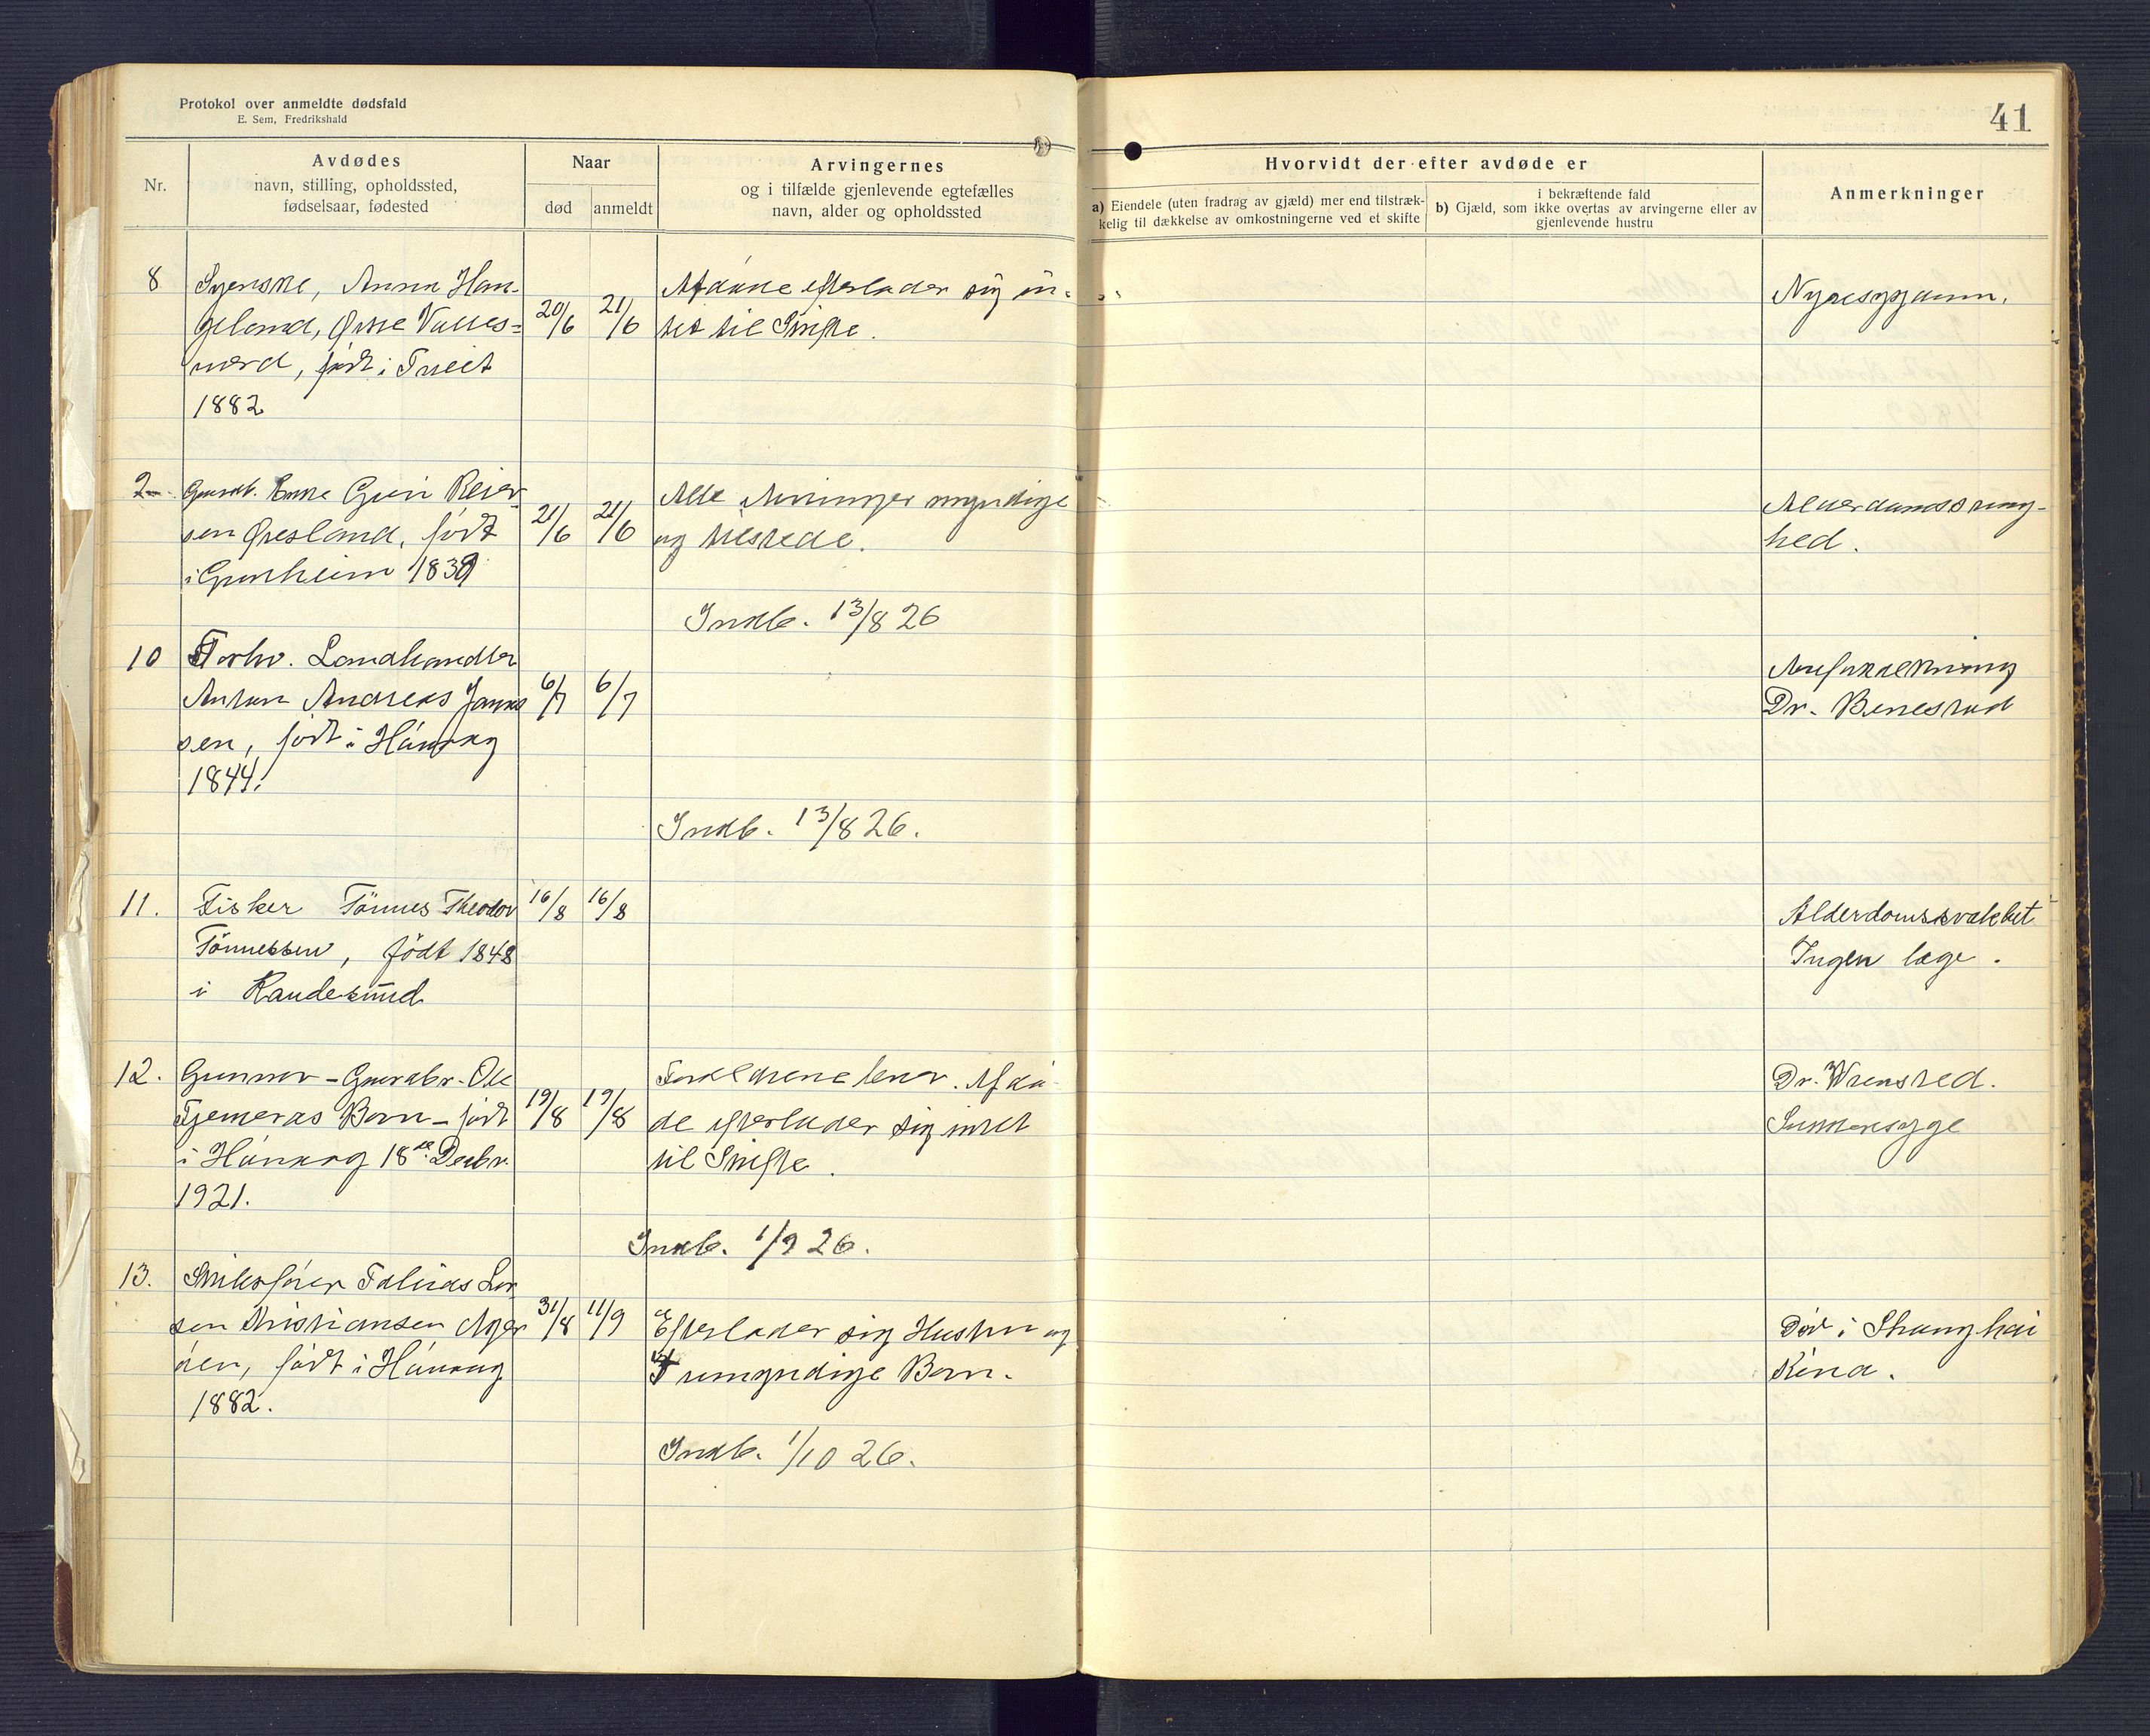 Protokol over anmeldte dødsfald
E. Sem, Fredrikshald
41
Nr.
Avdødes
navn, stilling, opholdssted,
fødselsaar, fødested
Naar
død
anmeldt
Arvingernes
og i tilfælde gjenlevende egtefælles
navn, alder og opholdssted
Hvorvidt der efter avdøde er
a) Eiendele (uten fradrag av gjæld) mer end tilstræk-
kelig til dækkelse av omkostningerne ved et skifte
i bekræftende fald
b) Gjæld, som ikke overtas av arvingerne eller av
gjenlevende hustru
Anmerkninger
8 Anna Hau-
geland, Øvre Valles-
værd, født i Tveit
1882
20/6 21/6
Afdøde efterlader sig in-
tet til Skifte.
Nyresygdom.
Gaardb. Enke Guri Reier-
sen Øresland, født
i 1839
21/6 21/6
Alle Arvinger myndige
og tilstede.
Alderdomssvag-
hed.
Indb. 13/8 26
10 Forhv. Landhandler
Anton Andreas Jans
sen, født i Hövaag
1844.
6/7 6/7
Aarforkalkning
Dr. Benestad
Indb. 13/8 26.
11. Fisker Tönnes Theodor
Tönnessen, födt 1848
i Randesund
16/8 16/8
Alderdomssvakhet
Ingen læge.
12. Gunnar - Gaardbr. Ole
Tjemeraas Barn - født
i Hövaag 18de Decbr.
1921.
19/8 19/8
Forældrene lever. Afdö-
de efterlader sig intet
til Skifte.
Dr. Wrensted.
Sukkersyge
Indb. 1/9 26.
13. Skibsfører Tobias Lar
sen Kristiansen Ager
öen, født i Hövaag
1882.
31/8 11/9
Efterlader sig Hustru og
umyndige Barn.
Död i Shanghai
Kina.
Indb. 1/10 26.